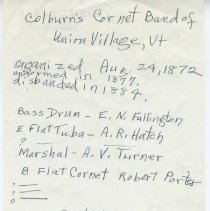 Colburn's Cornet Band of
Union Village, Vt
organized Aug, 24, 1872
uniformed in 1877.
disbanded in 1884.
Bass Drum - E. N. Fullington
E Flat Tuba - A. R. Hatch
?
Marshal - A. V. Turner
B Flat Cornet Robert Porter
?
?
?